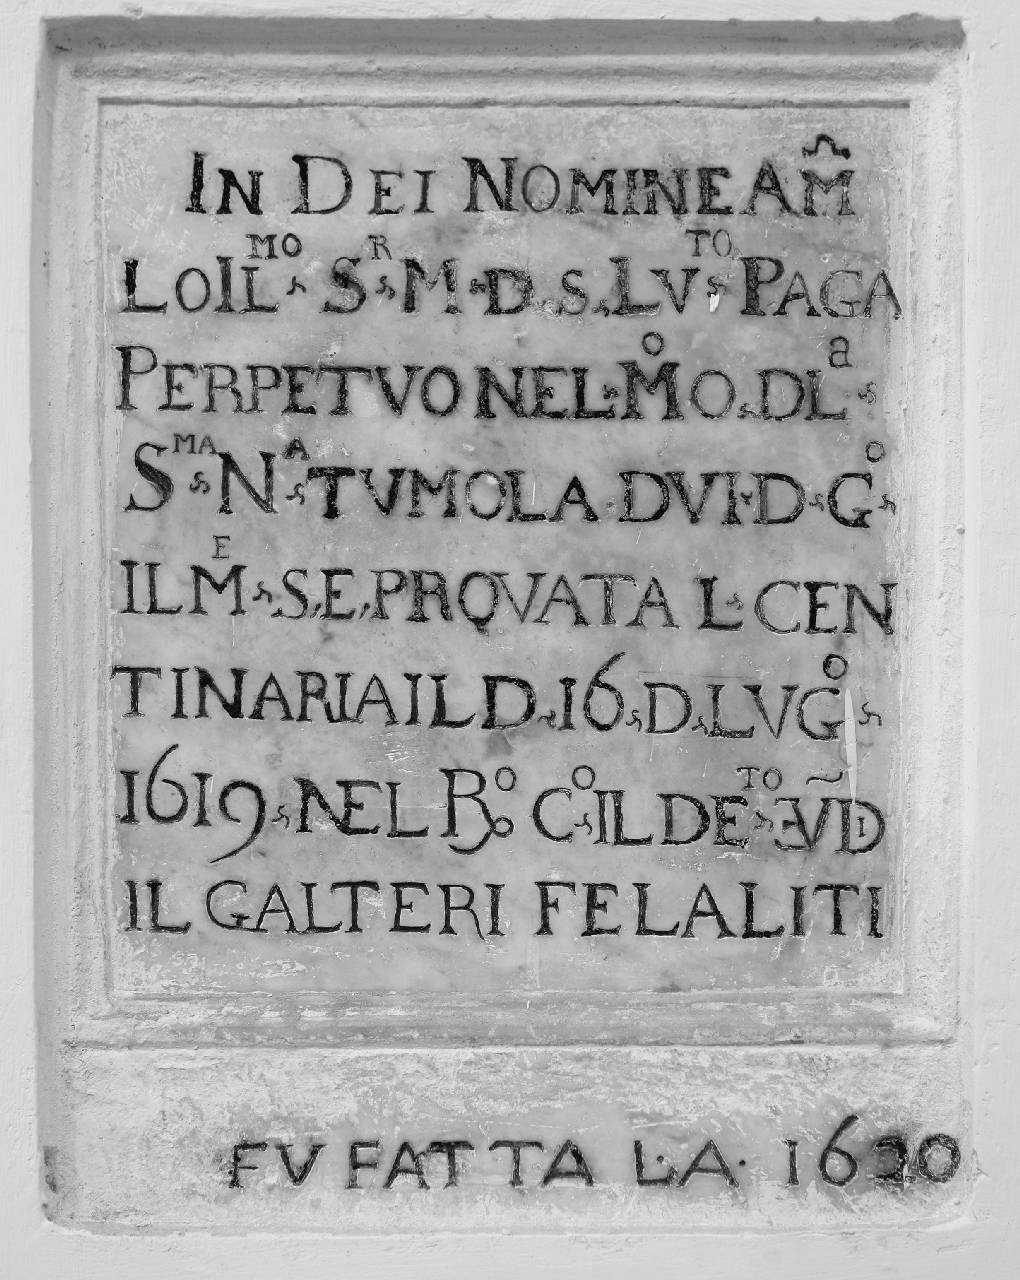 IN DEI NOMINE AM̃
LOILMO· SR· M·D·S·LVTO· PAGA
PERPETVO NEL·MOO·DLa·
SMA·NA·TVMOLA·DVI·D·GO·
ILME·S·E·PRQVATA L·CEN
TINARIAILD·16·D·LVGO·
1619·NEL Ro· Co·IL DETO·EVD
IL GALTERI FELALITI
FV FATTA LA· 1620